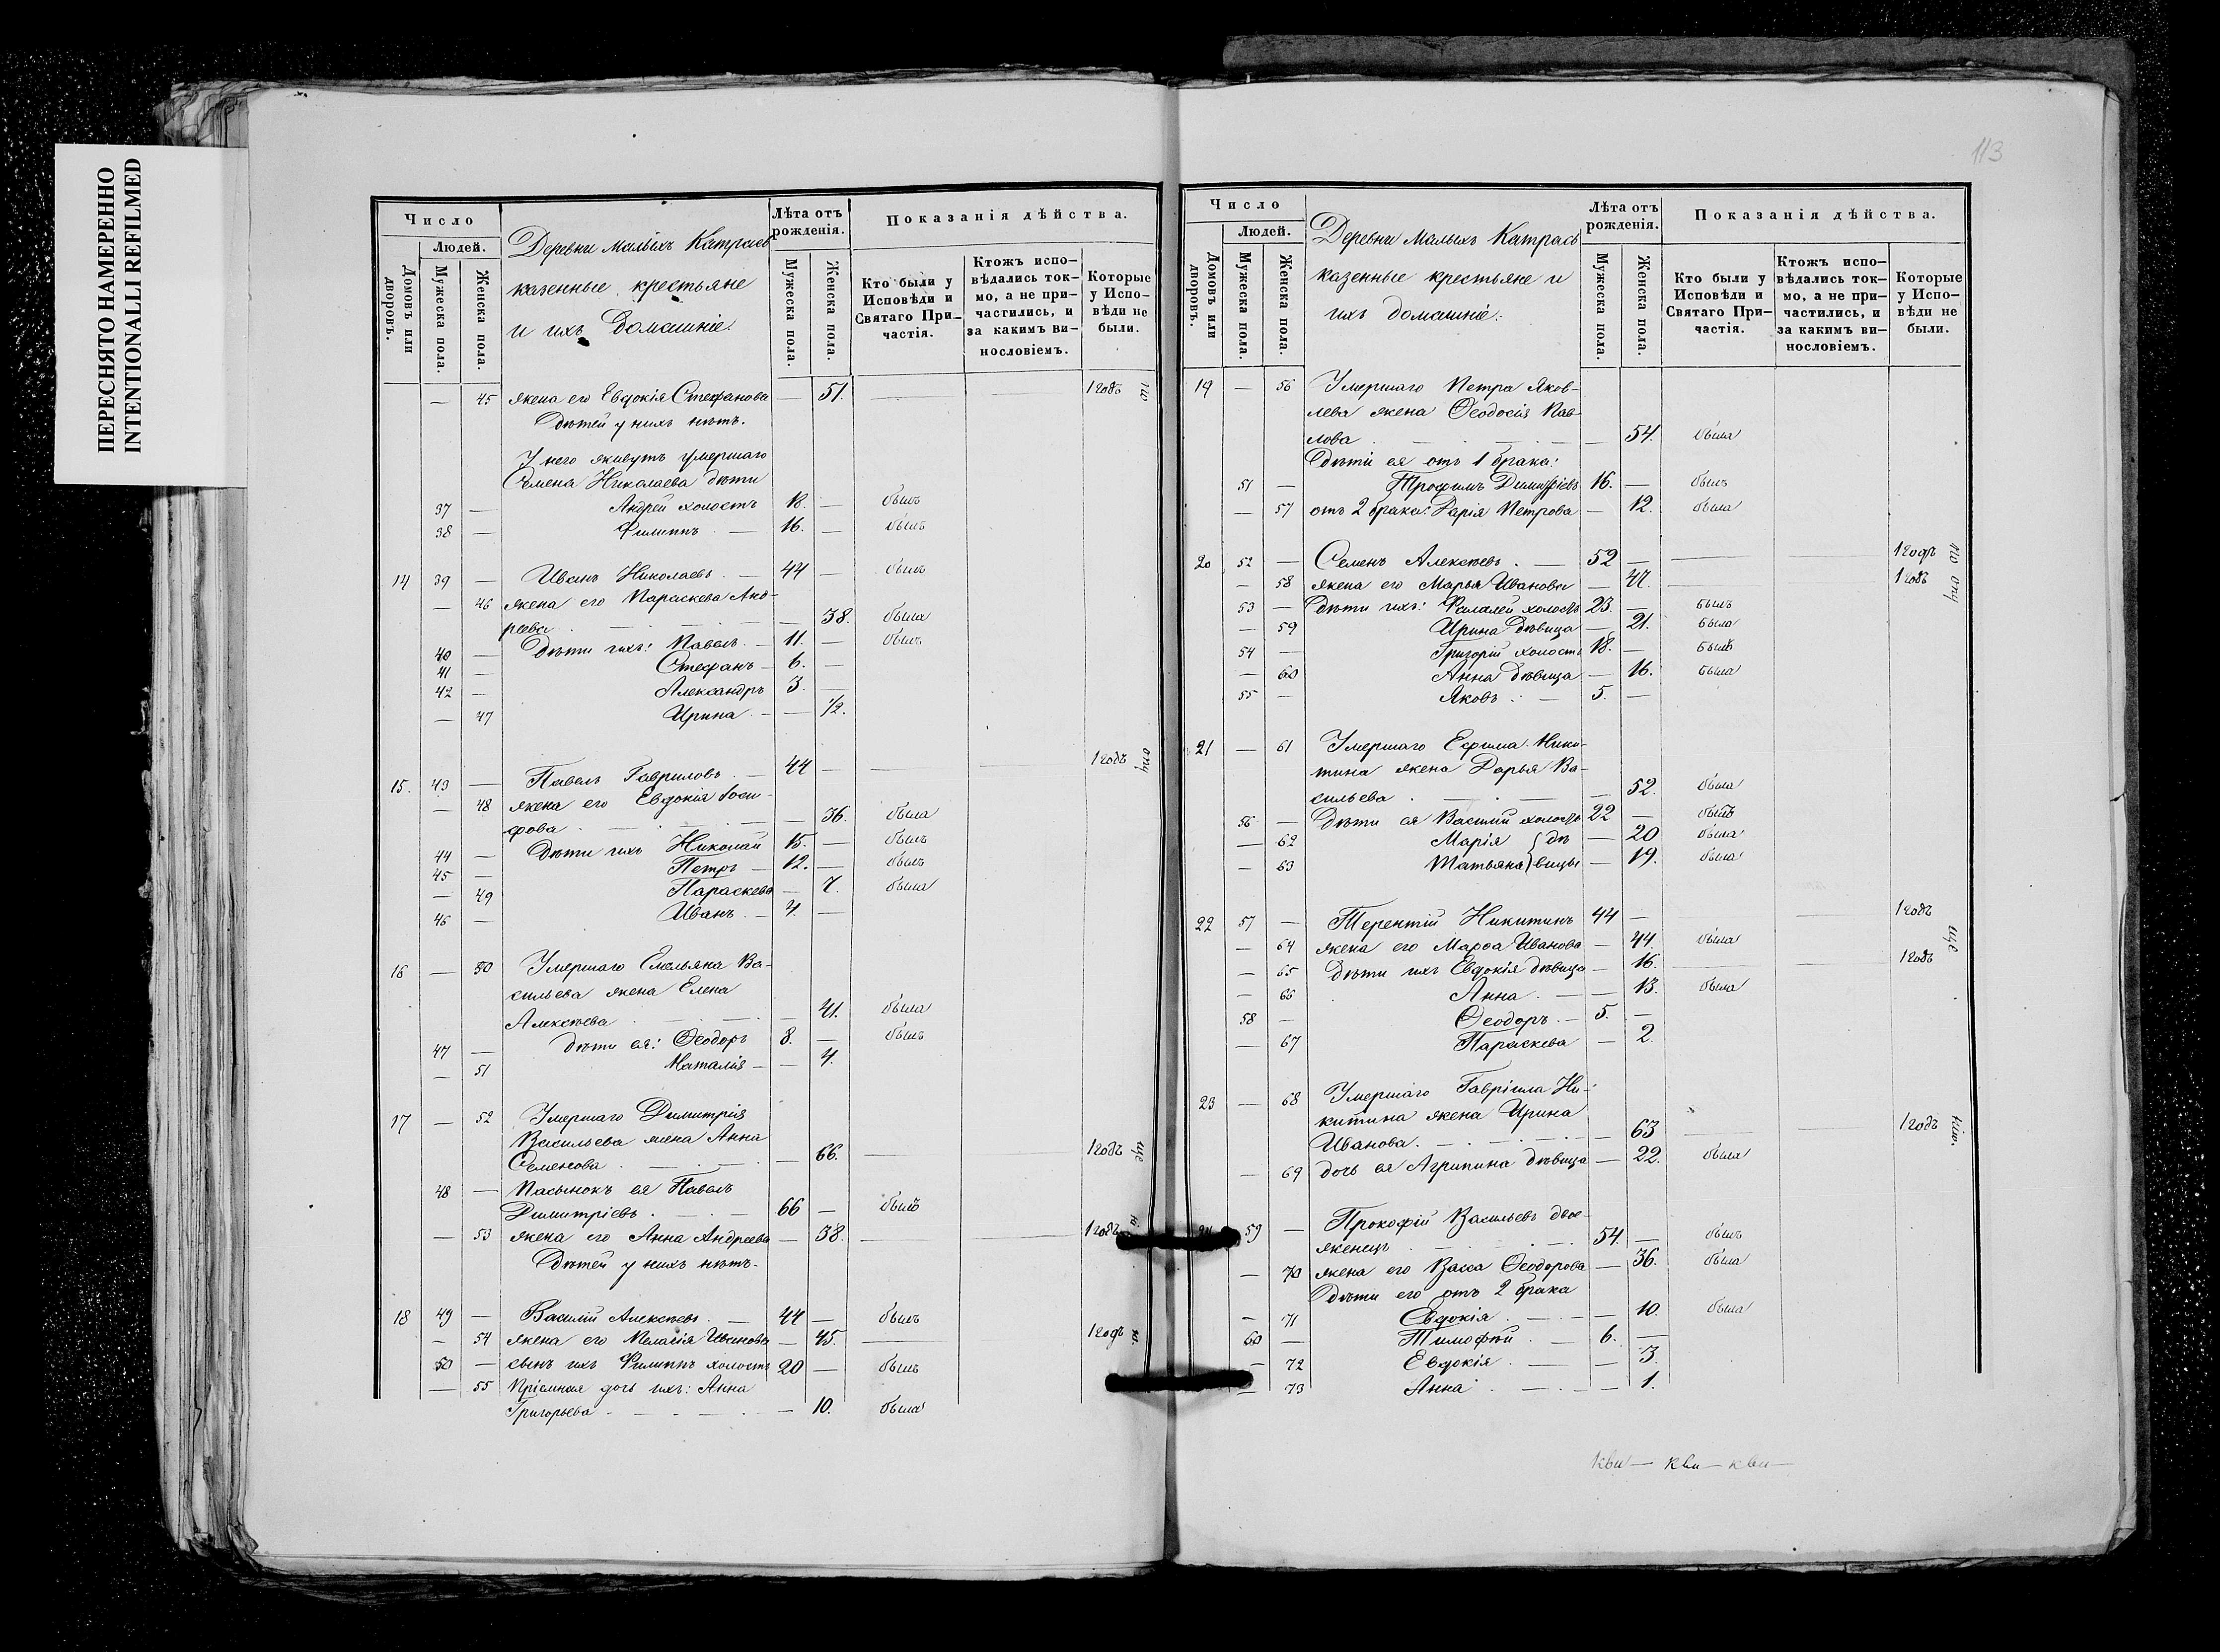 ПЕРЕСНЯТО НАМЕРЕННО
INTENTIONALLI REFILMED
113
Число
Людей.
Домовъ или дворовъ.
Мужеска пола.
Женска пола.
Деревни Малыхъ Катрась
казенные крестьяне
и ихъ домашніе.
Лѣта отъ рожденія.
Мужеска пола.
Женска пола.
Показанія дѣйства.
Кто были у Исповѣди и Святаго Причастія.
Ктожъ исповѣдались токмо, а не причастились, и за какимъ винословіемъ.
Которые у Исповѣди не были.
— 45 жена его Евдокія Стефанова — 51. 1 годъ
Дѣтей у нихъ нѣтъ.
У него живутъ умершаго
Семена Николаева дѣти
37 — Андрей холостъ 18. — былъ
38 — Филиппъ — 16. — былъ
14 39 — Иванъ Николаевъ — 44 — былъ
— 46 жена его Параскева Анд-
реева — 38. была
40 — Дѣти ихъ: Павелъ — 11 — былъ
41 — Стефанъ — 6. —
42 — Александръ 3. —
— 47 Ирина — — 1/2.
15. 43 — Павелъ Гавриловъ — 44 — 1 годъ
— 48 жена его Евдокія Іоси-
фова — 36. была
44 — Дѣти ихъ Николай 15. — былъ
45 — Петръ — 12. — былъ
— 49 Параскева — 7. была
46 — Иванъ — 4. —
16 — 50 Умершаго Емельяна Ва-
сильева жена Елена
Алексѣева — 41. была
47 — дѣти ея: Ѳеодоръ 8. — былъ
— 51 Наталія — — 4.
17 — 52 Умершаго Димитрія
Васильева жена Анна
Семенова — 66. 1 годъ
48 — Пасынокъ ея Павелъ
Димитріевъ — 66 — былъ
— 53 жена его Анна Андреева — 38. 1 годъ
Дѣтей у нихъ нѣтъ.
18 49 — Василій Алексѣевъ — 44 — былъ
— 54 жена его Меланія Иванова — 45. 1 годъ
50 — сынъ ихъ Филиппъ холостъ 20 — былъ
— 55 Пріемная дочь ихъ: Анна
Григорьева — 10. была
Число
Людей.
Домовъ или дворовъ.
Мужеска пола.
Женска пола.
Деревни Малыхъ Катрась
казенные крестьяне и
ихъ домашніе.
Лѣта отъ рожденія.
Мужеска пола.
Женска пола.
Показанія дѣйства.
Кто были у Исповѣди и Святаго Причастія.
Ктожъ исповѣдались токмо, а не причастились, и за какимъ винословіемъ.
Которые у Исповѣди не были.
19 — 56 Умершаго Петра Яков-
лева жена Ѳеодосія Пав-
лова — 54. была
Дѣти ея отъ 1 брака:
51 — Трофимъ Димитріевъ 16. — былъ
— 57 отъ 2 брака: Дарія Петрова — 12. была
20 52 — Семенъ Алексѣевъ — 52 — 1 годъ
— 58 жена его Марья Иванова — 47. 1 годъ
53 — Дѣти ихъ: Фалалей холостъ 23. — былъ
— 59 Ирина дѣвица — 21. была
54 — Григорій холостъ 18. — былъ
— 60 Анна дѣвица — 16. была
55 — Яковъ — 5. —
21 — 61 Умершаго Ефима Ники-
тина жена Дарья Ва-
сильева — 52. была
56 — Дѣти ея Василій холостъ 22 — былъ
— 62 Марія } дѣ — 20 была
— 63 Татьяна } вицы — 19. была
22 57 — Терентій Никитинъ 44 — 1 годъ
— 64 жена его Марѳа Иванова — 44. была
— 65 Дѣти ихъ Евдокія дѣвица — 16. 1 годъ
— 66 Анна — — 13. была
58 — Ѳеодоръ — 5. —
— 67 Параскева — 2.
23 — 68 Умершаго Гавріила Ни-
китина жена Ирина
Иванова — 63 1 годъ
— 69 дочь ея Агрипина дѣвица — 22. была
24 59 — Прокофій Васильевъ двое-
женецъ 54. — былъ
— 70 жена его Васса Ѳеодорова — 36. была
Дѣти его отъ 2 брака
— 71 Евдокія — — 10. была
60 — Тимофѣй — 6. —
— 72 Евдокія — — 3.
— 73 Анна — — 1.